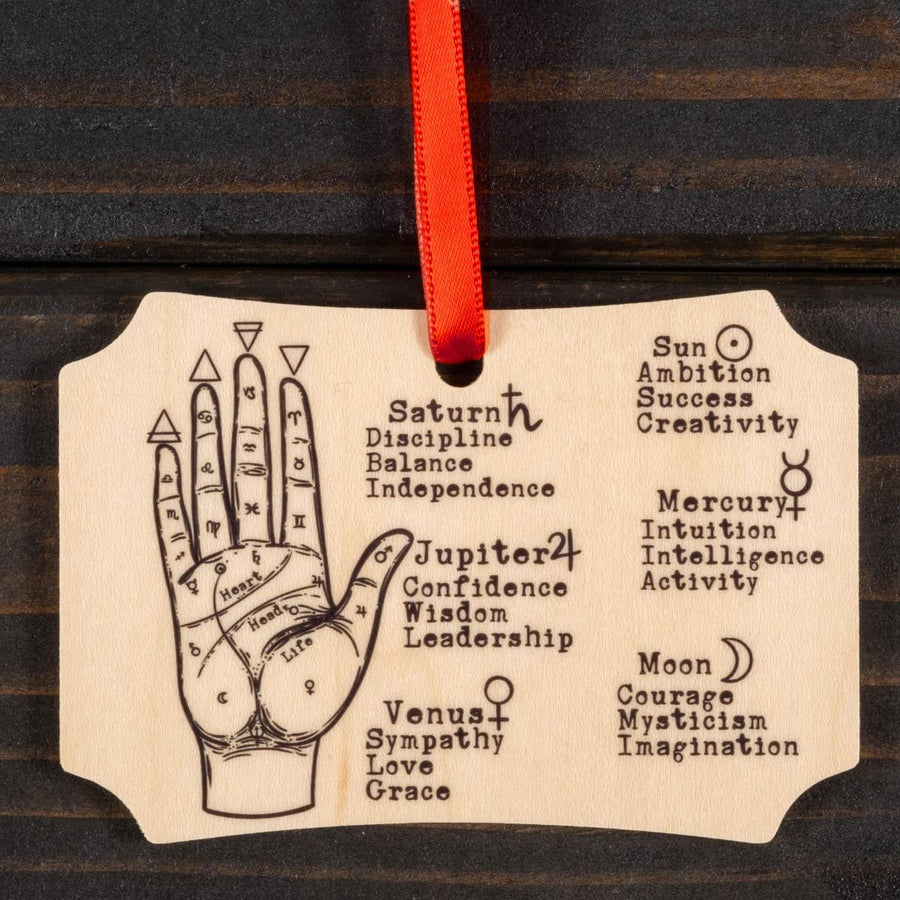 Heart
Head
Life
Saturn ♄
Discipline
Balance
Independence
Jupiter ♃
Confidence
Wisdom
Leadership
Venus ♀
Sympathy
Love
Grace
Sun ☉
Ambition
Success
Creativity
Mercury ☿
Intuition
Intelligence
Activity
Moon ☽
Courage
Mysticism
Imagination